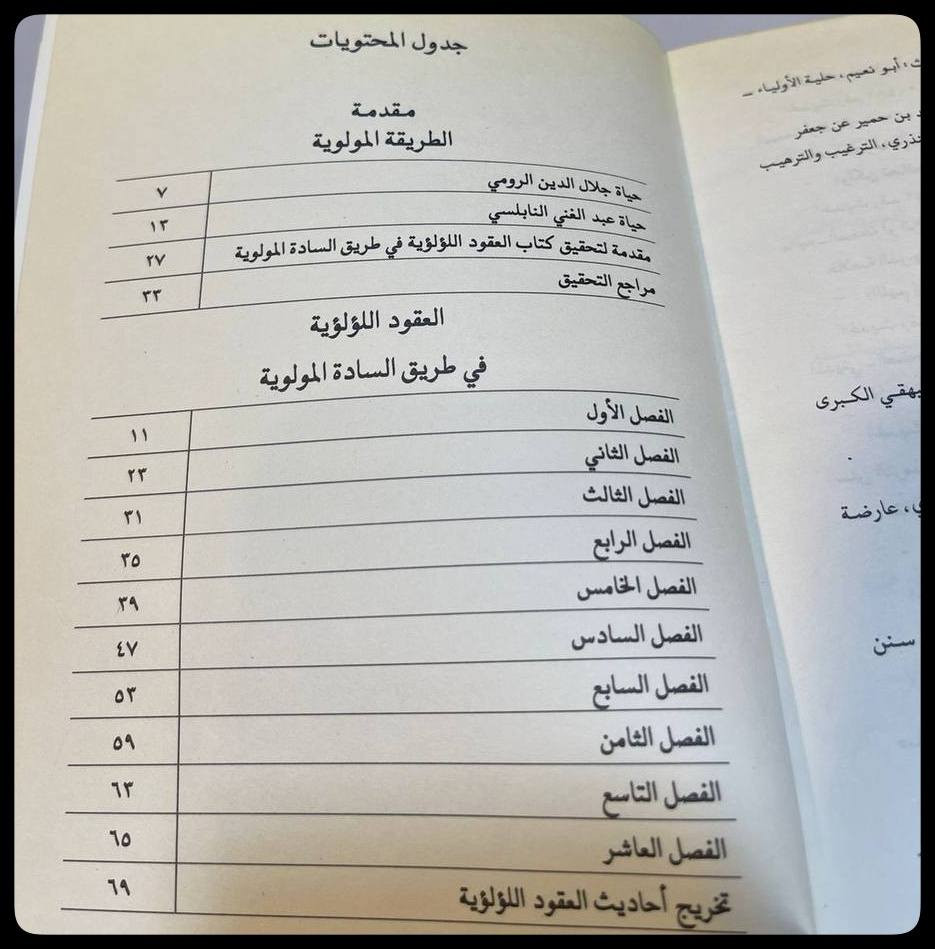 جدول المحتويات
مقدمة
الطريقة المولوية
حياة جلال الدين الرومي ٧
حياة عبد الغني النابلسي ١٣
مقدمة لتحقيق كتاب العقود اللؤلؤية في طريق السادة المولوية ٢٧
مراجع التحقيق ٣٣
العقود اللؤلؤية
في طريق السادة المولوية
الفصل الأول ١١
الفصل الثاني ٢٣
الفصل الثالث ٣١
الفصل الرابع ٣٥
الفصل الخامس ٣٩
الفصل السادس ٤٧
الفصل السابع ٥٣
الفصل الثامن ٥٩
الفصل التاسع ٦٣
الفصل العاشر ٦٥
تخريج أحاديث العقود اللؤلؤية ٦٩
أبو نعيم، حلية الأولياء ــ
بن حمير عن جعفر
الترغيب والترهيب
الكبرى
عارضة
سنن